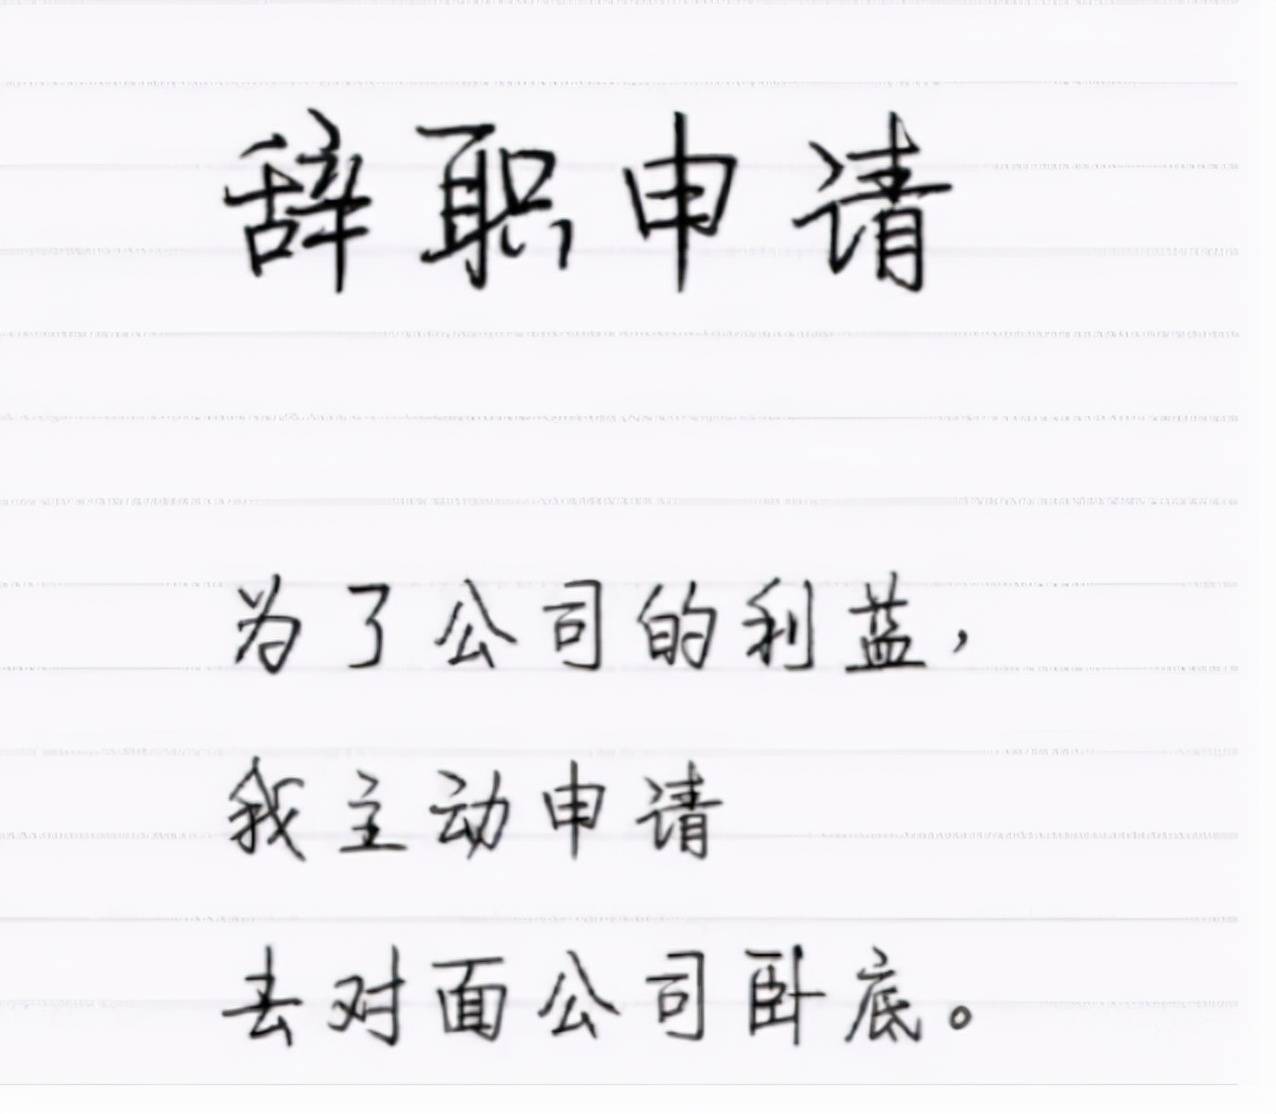 辞职申请
为了公司的利蓝，
我主动申请
去对面公司卧底。